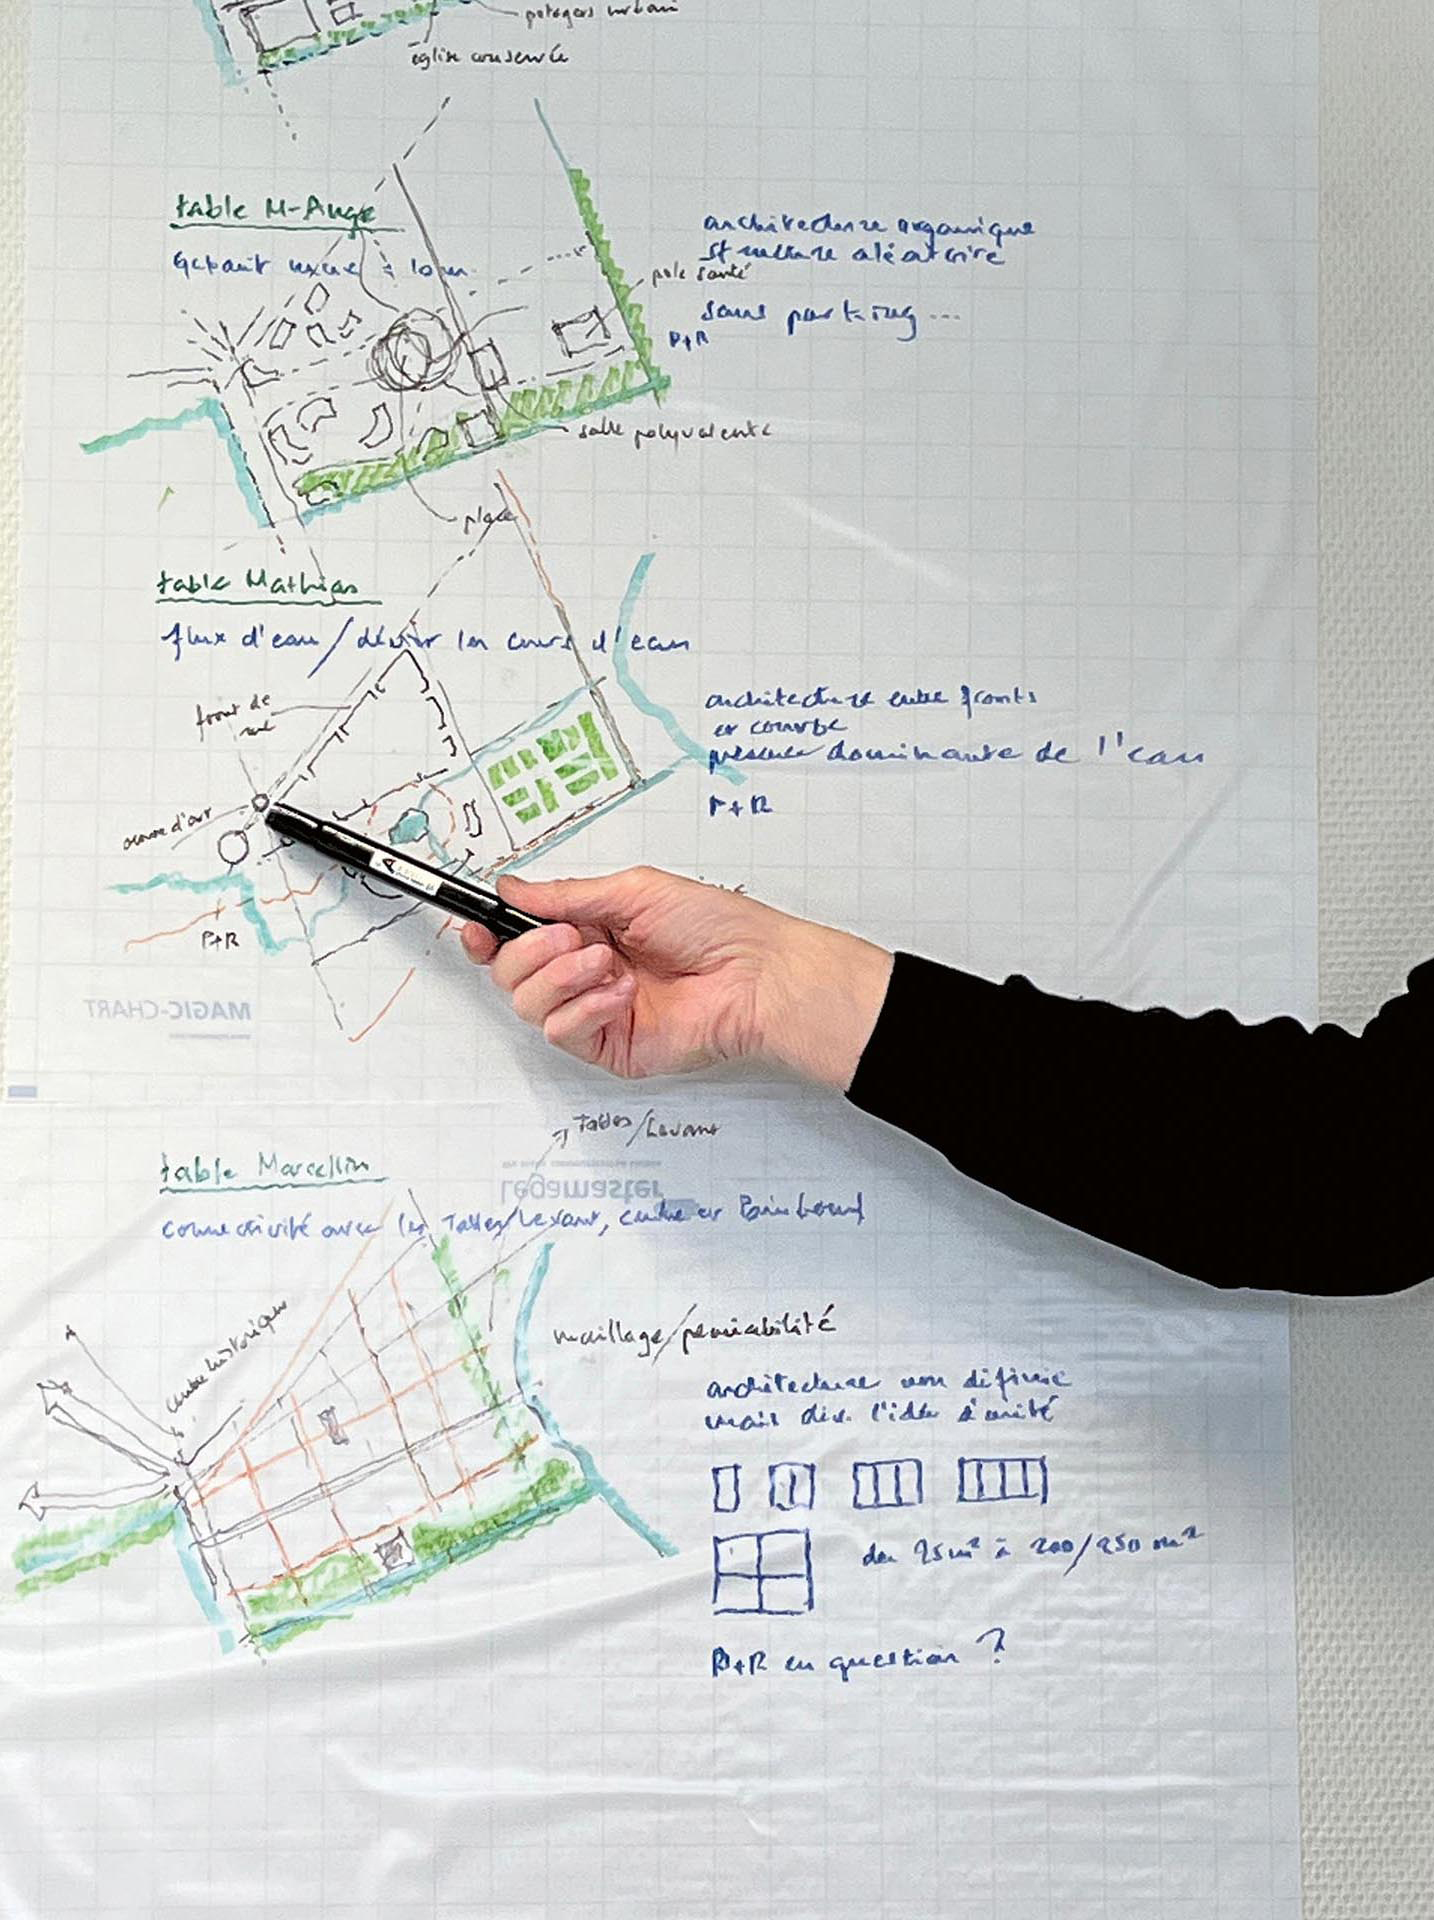 potagers urbain
église conservée
table M-Ange
architecture organique
structure aléatoire
pole santé
sans parking ...
P+R
salle polyvalente
place
table Mathias
flux d'eau / dévier les cours d'eau
front de
rue
architecture entre fronts
et courbe
présence dominante de l'eau
P+R
œuvre d'art
P+R
MAGIC-CHART
Tattes/Levant
table Marcellin
Legamaster
connectivité avec les Tattes/Levant, centre et
centre historique
maillage/perméabilité
architecture non définie
mais dev. l'idée d'unité
de 25m² à 200/250 m²
P+R en question ?